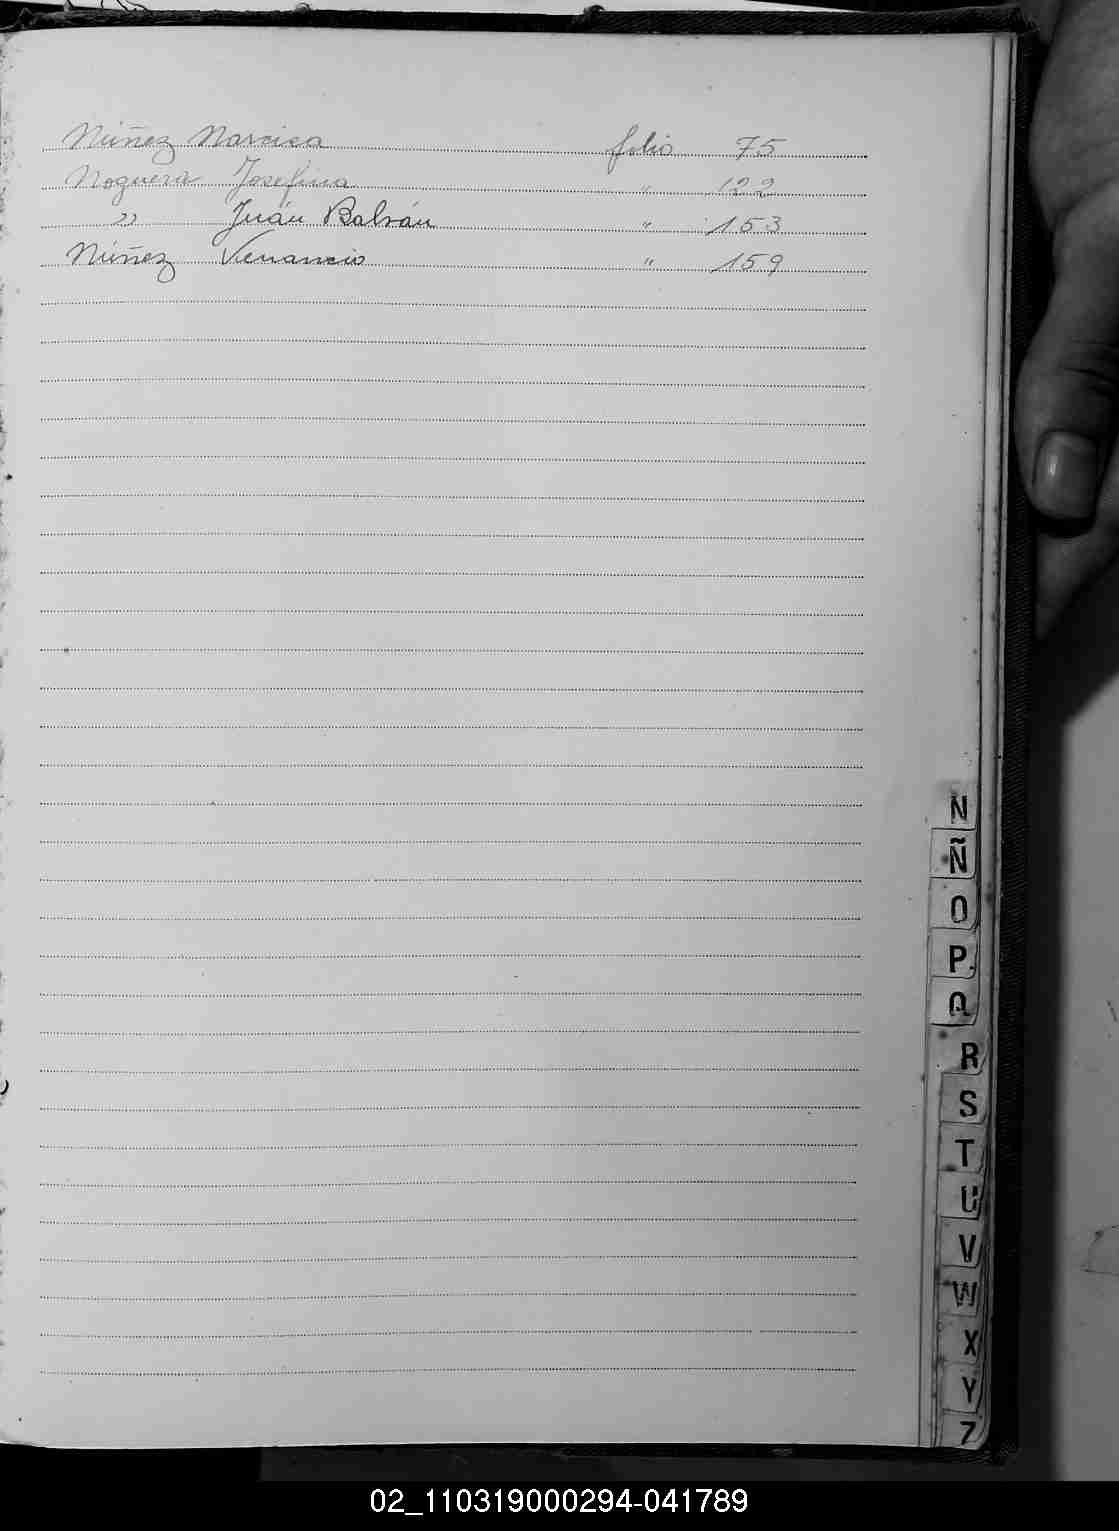 Núñez Narcisa folio 75
Noguera Josefina " 122
" Juán Balván " 153
Núñez Venancio " 159
N
Ñ
O
P
Q
R
S
T
U
V
W
X
Y
Z
02_110319000294-041789